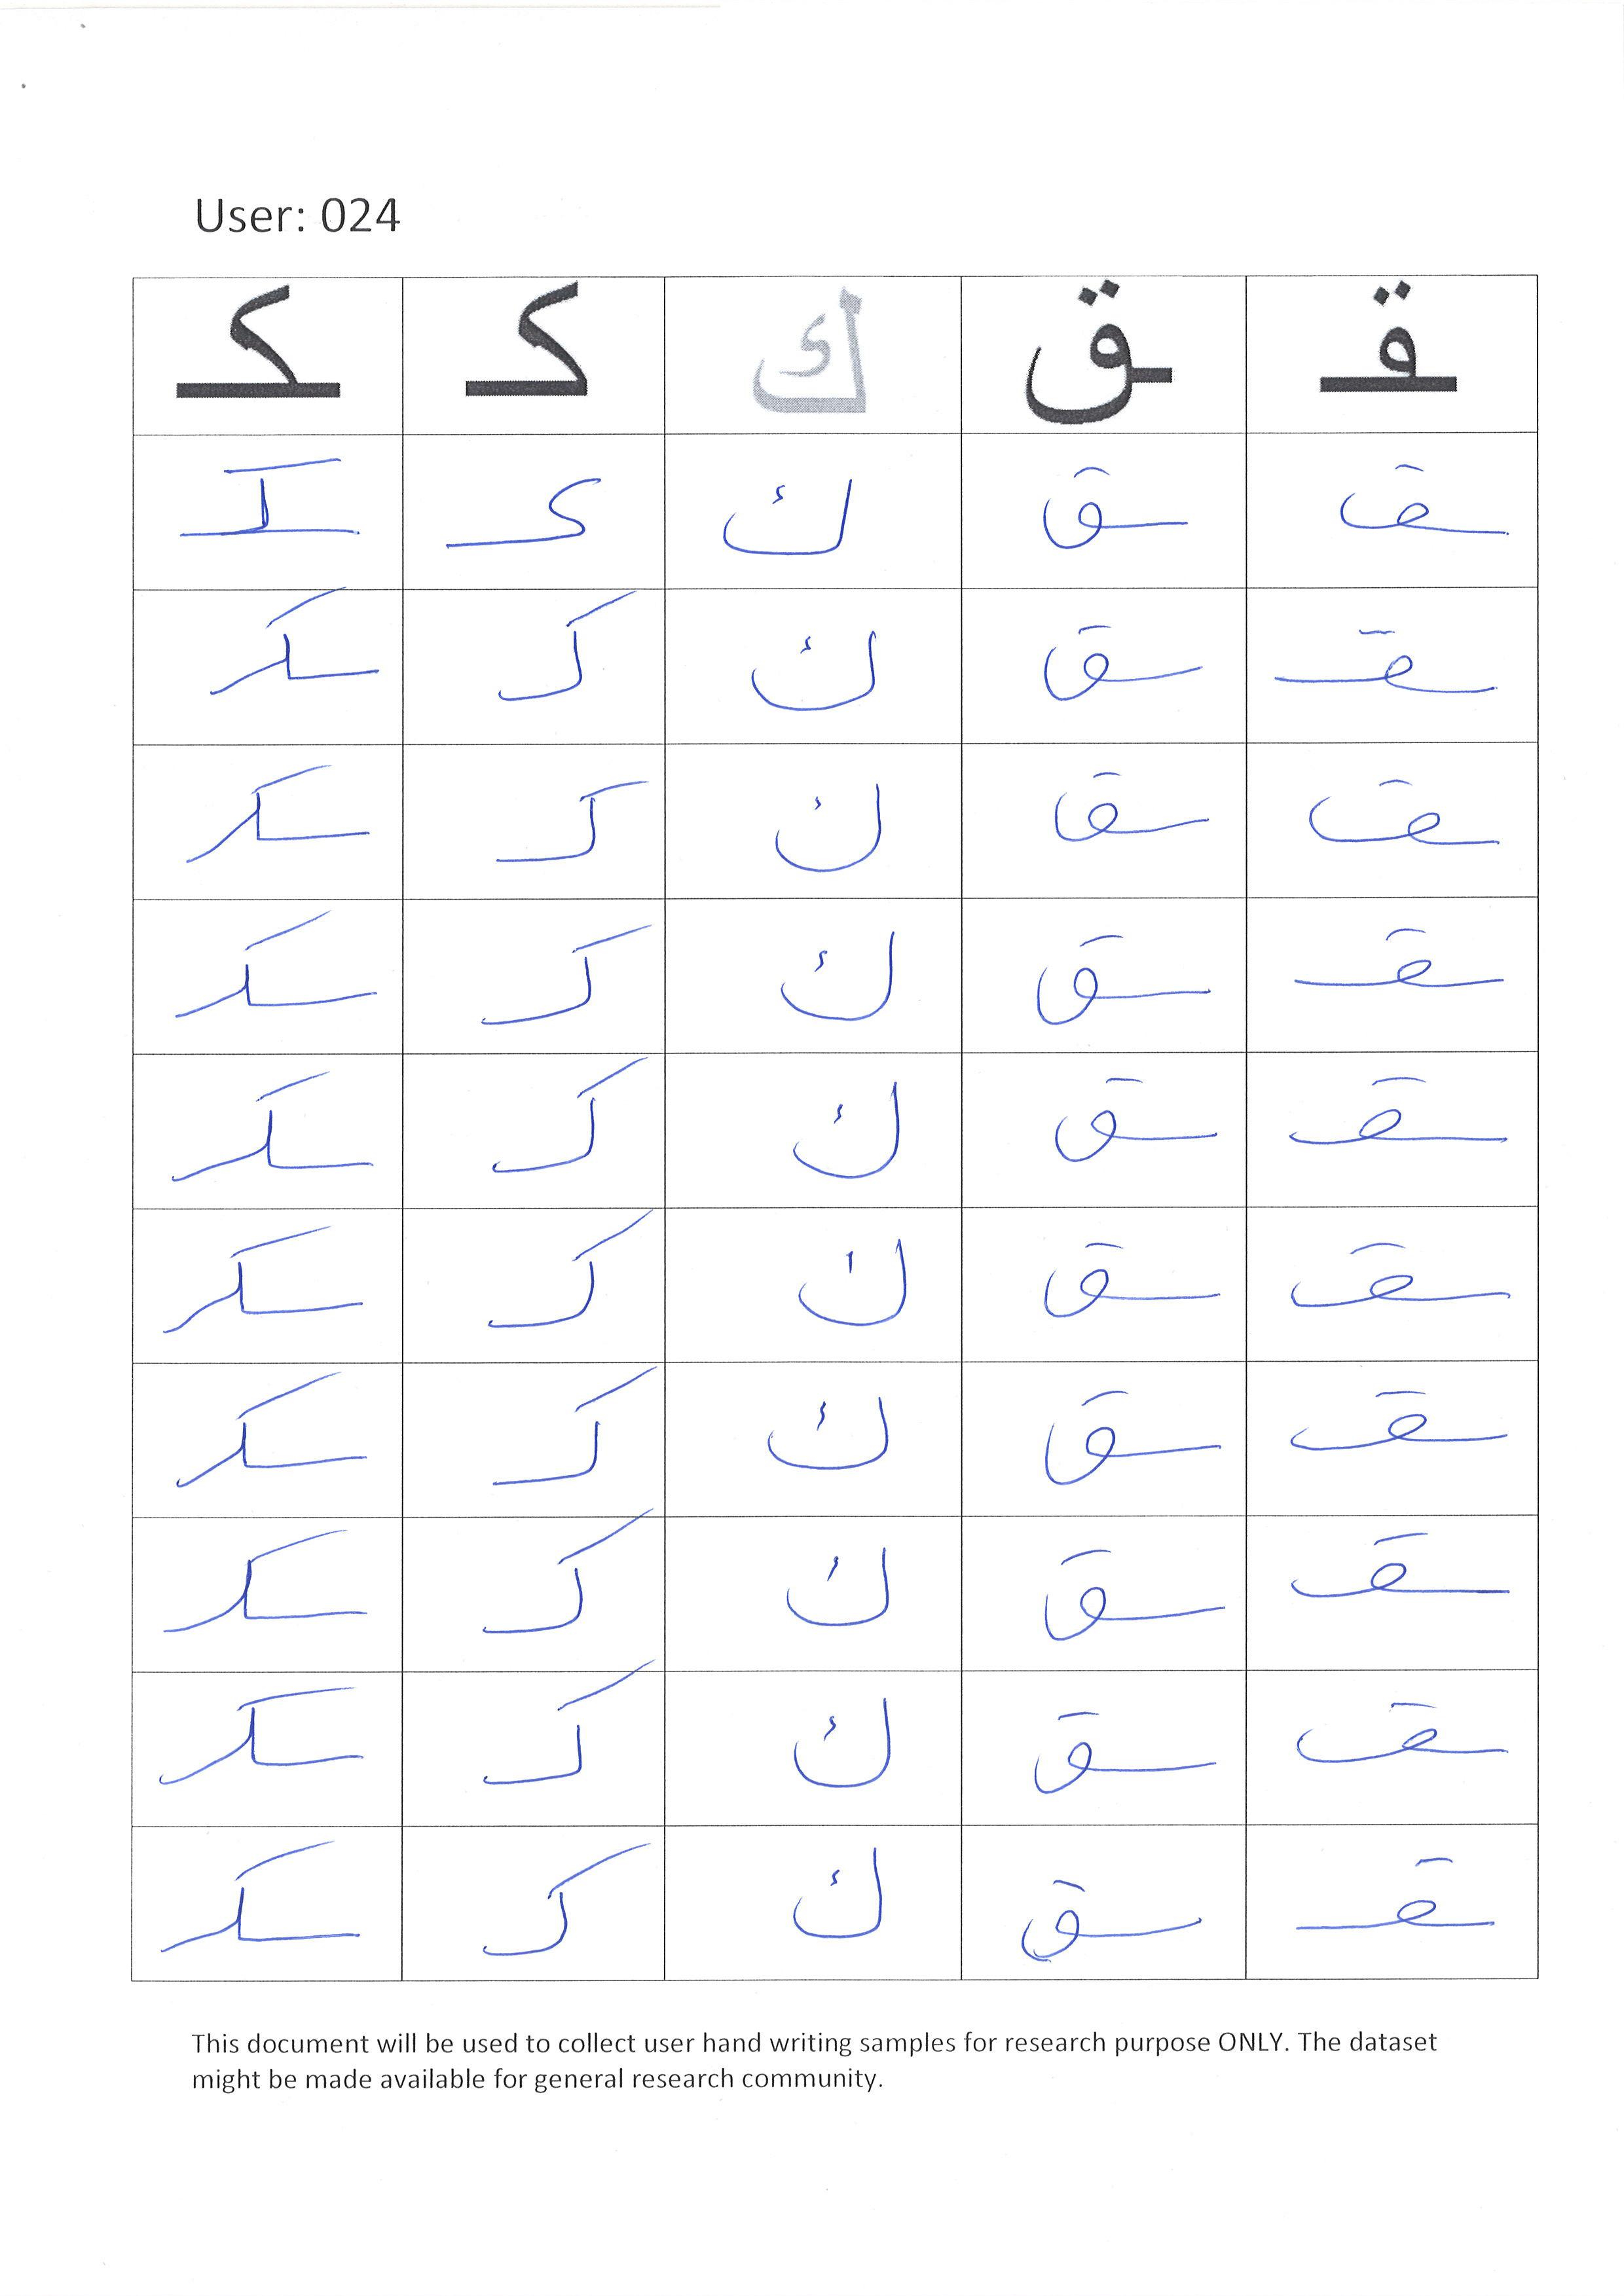 User: 024
ـقـ ـق ك كـ ـكـ
ـقـ ـق ك كـ ـكـ
ـقـ ـق ك كـ ـكـ
ـقـ ـق ك كـ ـكـ
ـقـ ـق ك كـ ـكـ
ـقـ ـق ك كـ ـكـ
ـقـ ـق ك كـ ـكـ
ـقـ ـق ك كـ ـكـ
ـقـ ـق ك كـ ـكـ
ـقـ ـق ك كـ ـكـ
ـقـ ـق ك كـ ـكـ
This document will be used to collect user hand writing samples for research purpose ONLY. The dataset
might be made available for general research community.